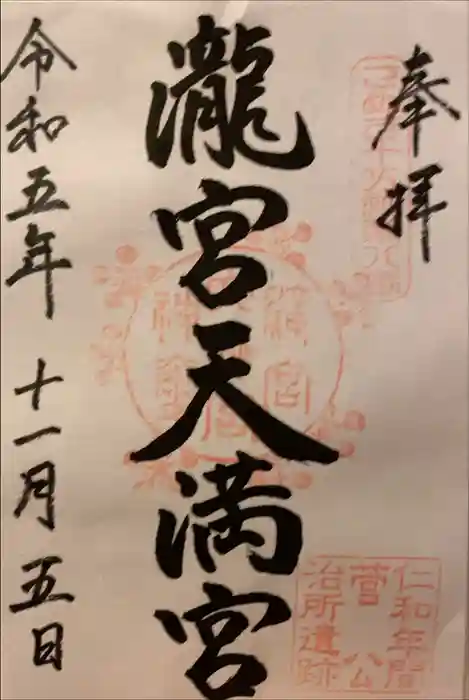 奉拝
瀧宮天満宮
令和五年 十一月五日
仁和年間
菅公
治所遺跡